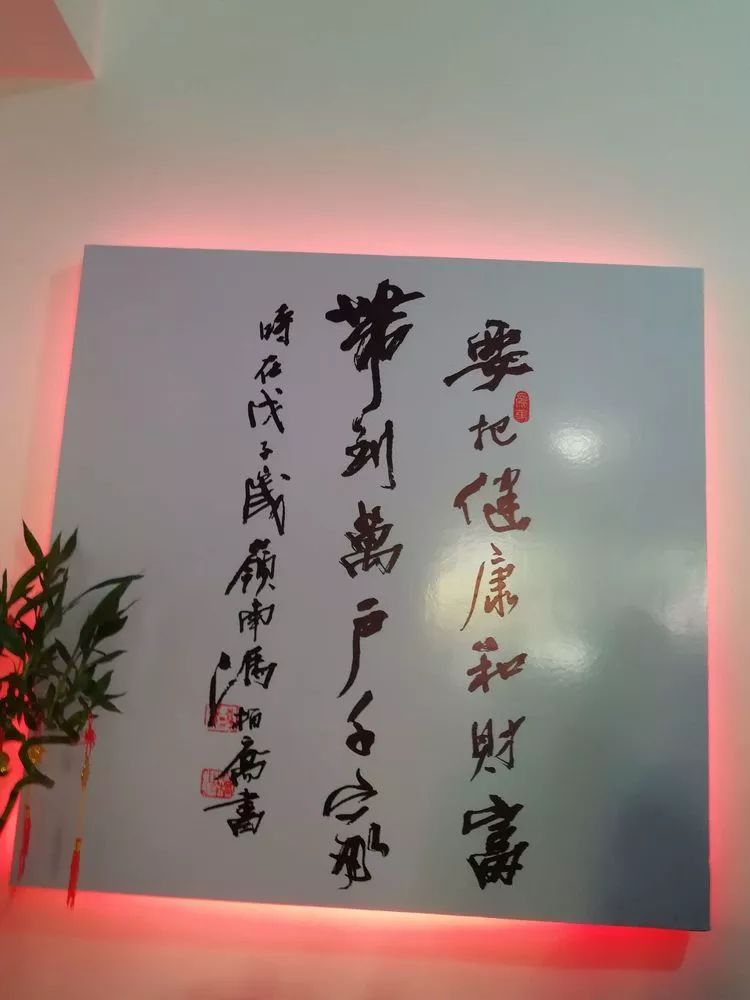 要把健康和財富
帶到萬户千家
時在戊子歲嶺南馮栢喬書